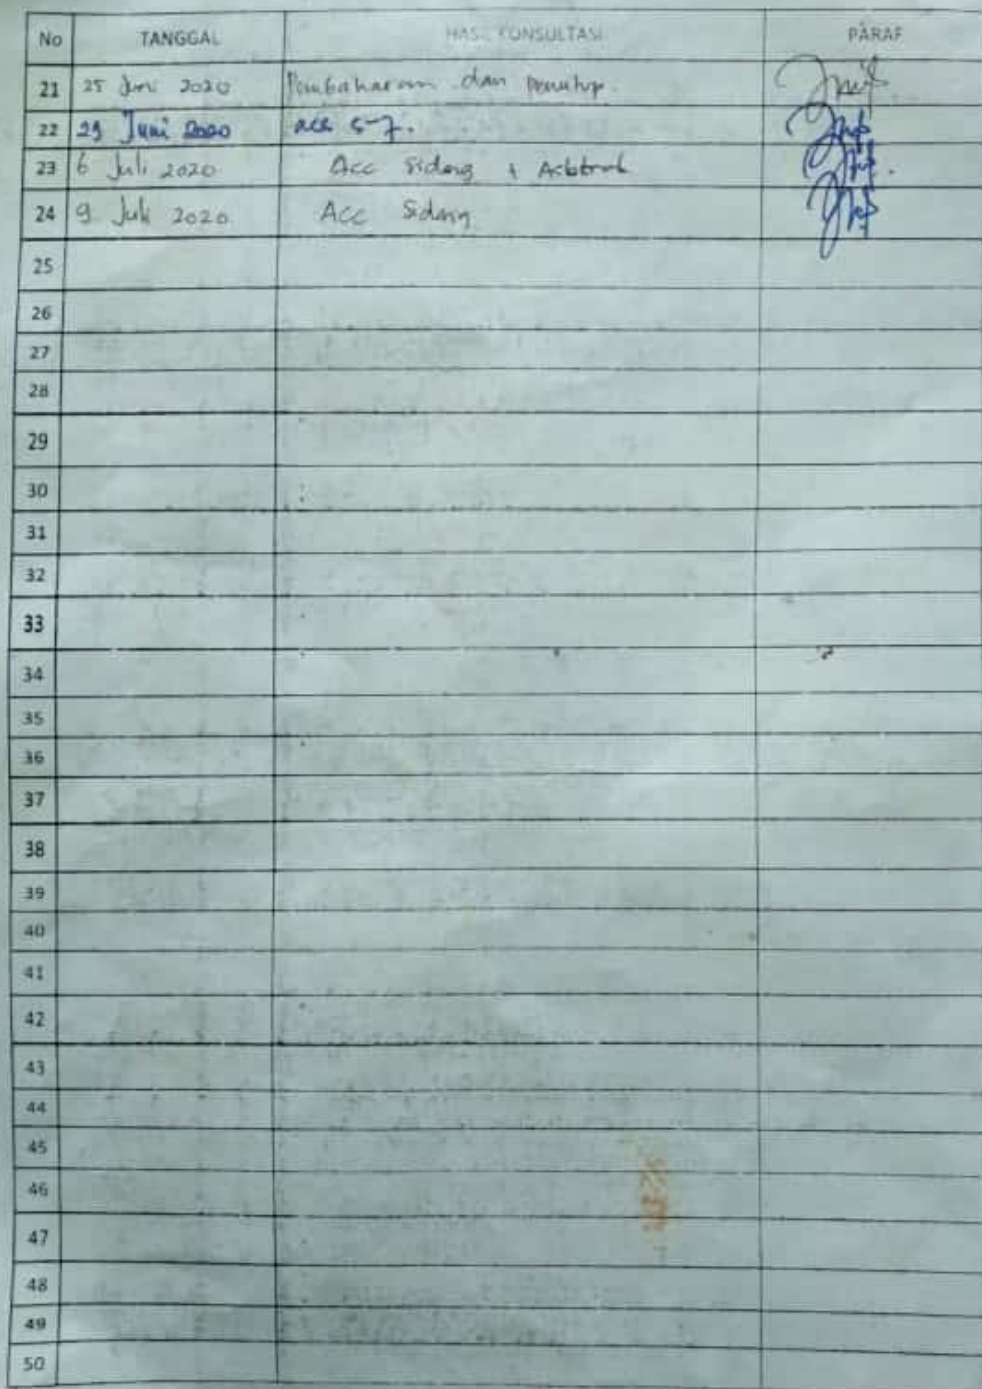 No TANGGAL HASIL KONSULTASI PARAF
21 25 Juni 2020 Pembaharuan dan penutup.
22 29 Juni 2020 acc 5-7.
23 6 Juli 2020 Acc Sidang + Asbtrak
24 9 Juli 2020 Acc Sidang
25
26
27
28
29
30
31
32
33
34
35
36
37
38
39
40
41
42
43
44
45
46
47
48
49
50